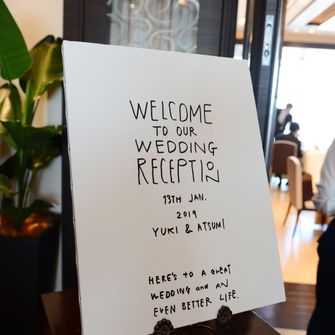 WELCOME
TO OUR
WEDDING
RECEPTION
13TH JAN.
2019
YUKI & ATSUMI
HERE'S TO A GREAT
WEDDING and AN
EVEN BETTER LIFE.